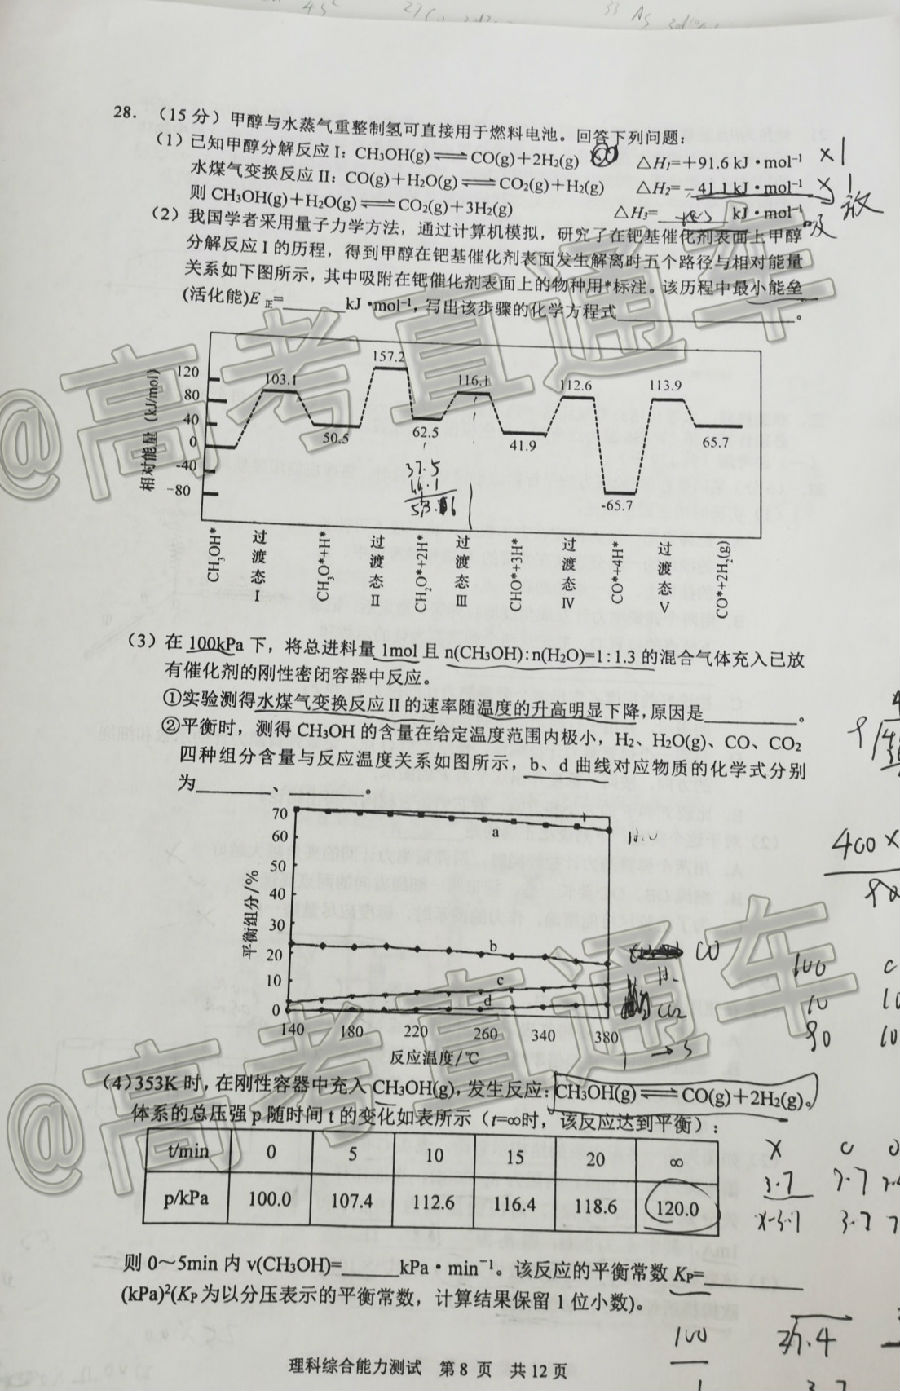 28. （15 分）甲醇与水蒸气重整制氢可直接用于燃料电池。回答下列问题：
（1）已知甲醇分解反应 I：CH₃OH(g)⇌CO(g)+2H₂(g) △H₁=+91.6 kJ·mol⁻¹ ×1
水煤气变换反应 II：CO(g)+H₂O(g)⇌CO₂(g)+H₂(g) △H₂=-41.1kJ·mol⁻¹ ×1
则 CH₃OH(g)+H₂O(g)⇌CO₂(g)+3H₂(g) △H₃=______kJ·mol⁻¹
吸 放
（2）我国学者采用量子力学方法，通过计算机模拟，研究了在钯基催化剂表面上甲醇
分解反应 I 的历程，得到甲醇在钯基催化剂表面发生解离时五个路径与相对能量
关系如下图所示，其中吸附在钯催化剂表面上的物种用*标注。该历程中最小能垒
(活化能)E正=______kJ·mol⁻¹，写出该步骤的化学方程式____________。
相对能量（kJ/mol）
120
80
40
0
-40
-80
103.1
50.5
157.2
62.5
116.1
41.9
112.6
-65.7
113.9
65.7
CH₃OH*
过渡态 I
CH₃O*+H*
过渡态 II
CH₂O*+2H*
过渡态 III
CHO*+3H*
过渡态 IV
CO*+4H*
过渡态 V
CO*+2H₂(g)
（3）在 100kPa 下，将总进料量 1mol 且 n(CH₃OH):n(H₂O)=1:1.3 的混合气体充入已放
有催化剂的刚性密闭容器中反应。
①实验测得水煤气变换反应 II 的速率随温度的升高明显下降,原因是________。
②平衡时，测得 CH₃OH 的含量在给定温度范围内极小，H₂、H₂O(g)、CO、CO₂
四种组分含量与反应温度关系如图所示，b、d 曲线对应物质的化学式分别
为________、________。
平衡组分/%
70
60
50
40
30
20
10
0
a
b
c
d
CO
140 180 220 260 340 380
反应温度/℃
（4）353K 时，在刚性容器中充入 CH₃OH(g)，发生反应：CH₃OH(g)⇌CO(g)+2H₂(g)。
体系的总压强 p 随时间 t 的变化如表所示（t=∞时，该反应达到平衡）：
t/min 0 5 10 15 20 ∞
p/kPa 100.0 107.4 112.6 116.4 118.6 120.0
则 0～5min 内 v(CH₃OH)=______kPa·min⁻¹。该反应的平衡常数 Kₚ=________
(kPa)²(Kₚ 为以分压表示的平衡常数，计算结果保留 1 位小数)。
理科综合能力测试 第 8 页 共 12 页
@高考直通车
@高考直通车